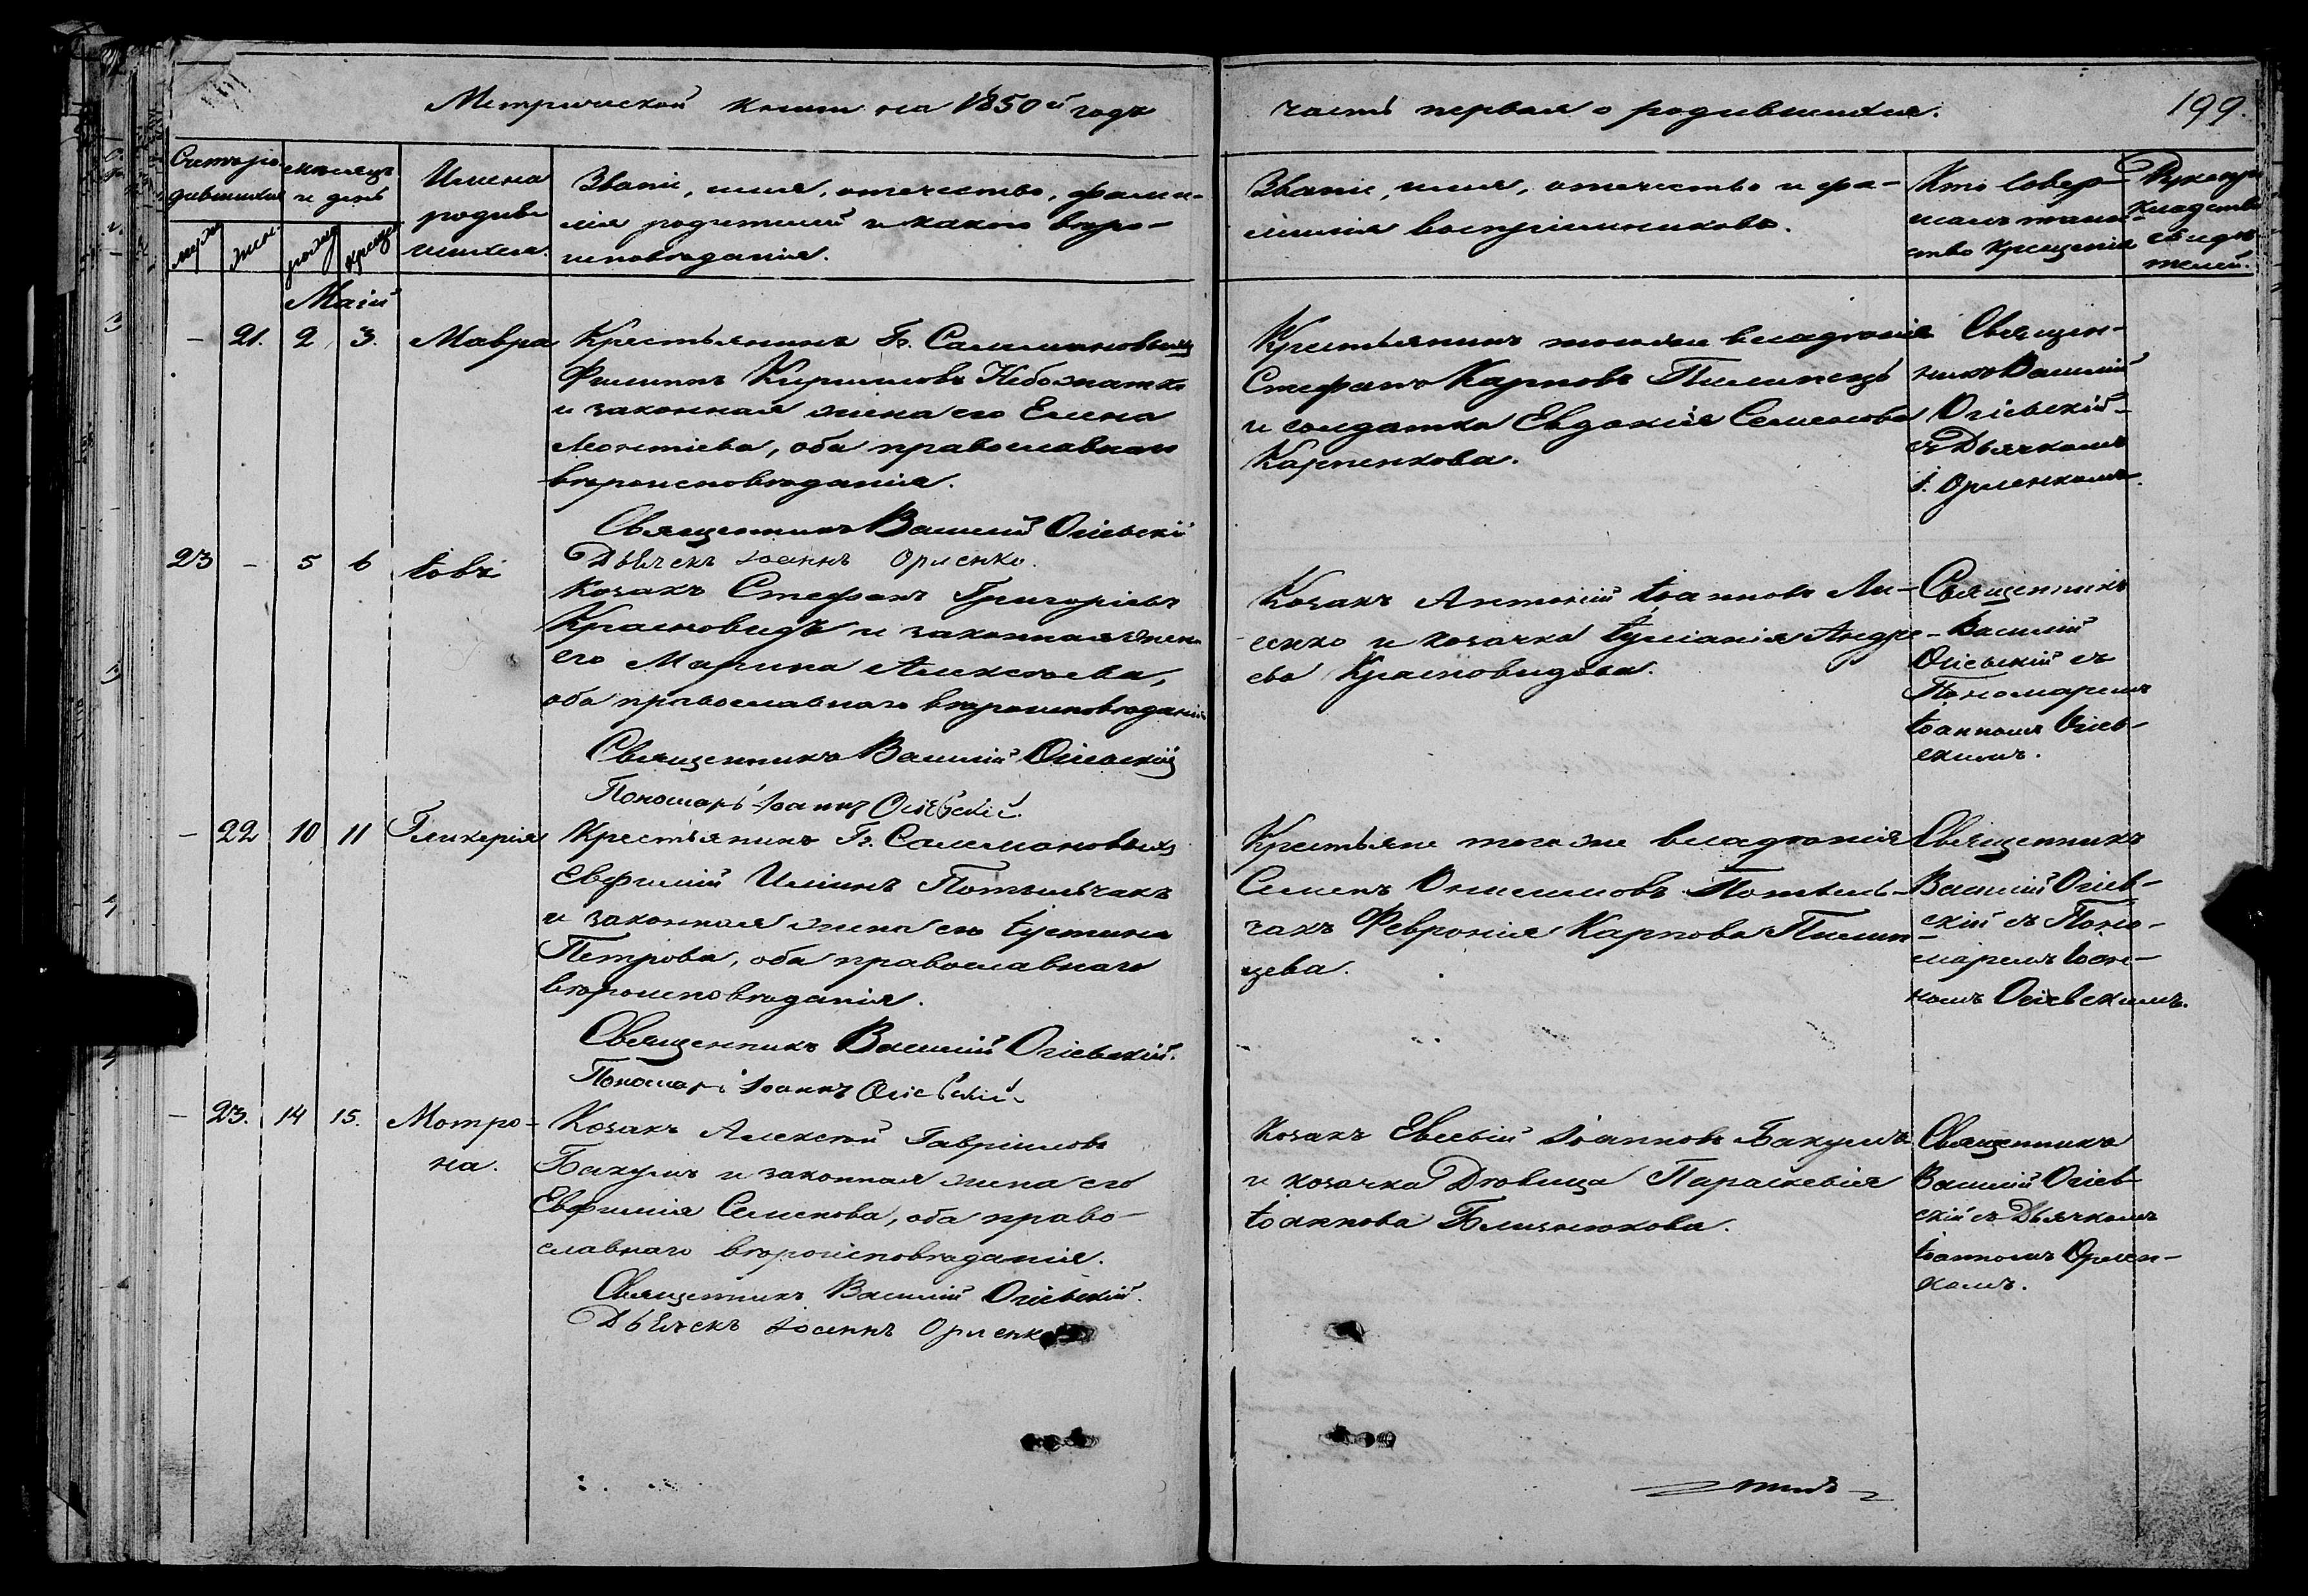 Метрической книги на 1850й годъ
часть первая о родившихся.
199.
Счетъ ро-
дившихся
муж. жен.
месяцъ
и день
рожд. крещен.
Имена
родив-
шихся.
Званіе, имя, отечество, фами-
лія родителей и какого веро-
исповѣданія.
Званіе, имя, отечество и фа-
милія воспріимниковъ.
Кто совер-
шалъ таин-
ство крещенія
Рукопри-
кладство
свидѣ-
телей.
Маій
- 21. 2 3. Мавра
Крестьянинъ Г. Салимоновыхъ
Филиппъ Кириловъ Небожатко
и законная жена его Елена
Леонтіева, оба православнаго
вѣроисповѣданія.
Священникъ Василій Огіевскій
Дьячекъ Іоаннъ Орленко.
Крестьянинъ того же владѣнія
Стефанъ Карповъ Пилипецъ
и солдатка Евдокія Семенова
Карпенкова.
Священ-
никъ Василій
Огіевскій
съ Дьячкомъ
І. Орленкомъ.
23 - 5 6 Іовъ
Козакъ Стефанъ Григоріевъ
Красновидъ и законная жена
его Марина Алексѣева,
оба православнаго вѣроисповѣданія
Священникъ Василій Огіевскій
Пономарь Іоаннъ Огіевскій.
Козакъ Антоній Іоанновъ Ли-
сенко и козачка Іуліанія Андре-
ева Красновидова.
Священникъ
Василій
Огіевскій съ
Пономаремъ
Іоанномъ Огіев-
скимъ.
- 22 10 11 Гликерія
Крестьянинъ Г. Салимоновыхъ
Евфимій Илиинъ Потыльчакъ
и законная жена его Іустина
Петрова, оба православнаго
вѣроисповѣданія.
Священникъ Василій Огіевскій.
Пономарь Іоаннъ Огіевскій.
Крестьяне того же владѣнія
Семенъ Онисимовъ Потыль-
чакъ Февронія Карпова Пилип-
цева.
Священникъ
Василій Огіев-
скій съ Поно-
маремъ Іоан-
номъ Огіевскимъ.
- 23. 14 15. Мотро-
на.
Козакъ Алексѣй Гавріиловъ
Бакумъ и законная жена его
Евфимія Семенова, оба право-
славнаго вѣроисповѣданія.
Священникъ Василій Огіевскій.
Дьячекъ Іоаннъ Орленко
Козакъ Евсевій Іоанновъ Бакумъ
и козачка Дѣвица Параскевія
Іоаннова Близнюкова.
Священникъ
Василій Огіев-
скій съ Дьячкомъ
Іоанномъ Орлен-
комъ.